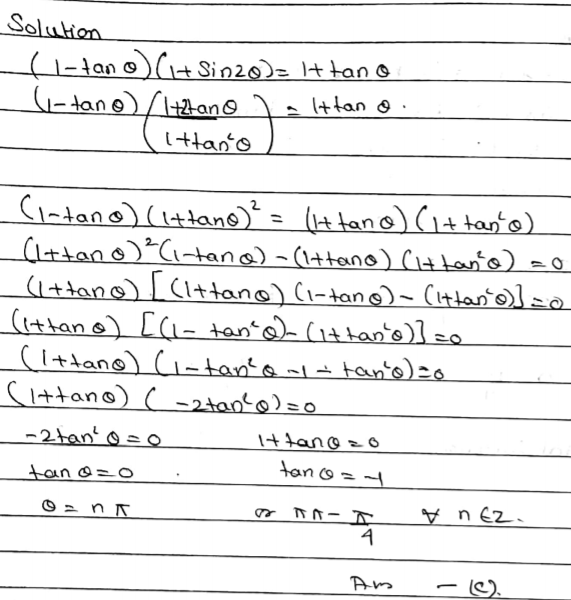 Solution
(1-tan θ)(1+Sin2θ)= 1+tan θ
(1-tan θ) (1+2tanθ / 1+tan²θ) = 1+tan θ.
(1-tan θ)(1+tanθ)² = (1+tan θ)(1+tan²θ)
(1+tan θ)²(1-tan θ) - (1+tanθ)(1+tan²θ) = 0
(1+tan θ) [(1+tanθ)(1-tan θ) - (1+tan²θ)] = 0
(1+tan θ) [(1- tan²θ) - (1+tan²θ)] = 0
(1+tan θ) (1-tan²θ -1 - tan²θ) = 0
(1+tan θ) (-2tan²θ) = 0
-2tan²θ = 0 1+tan θ = 0
tan θ = 0 . tan θ = -1
θ = nπ or nπ - π/4 ∀ n ∈ Z.
Ans - (c).